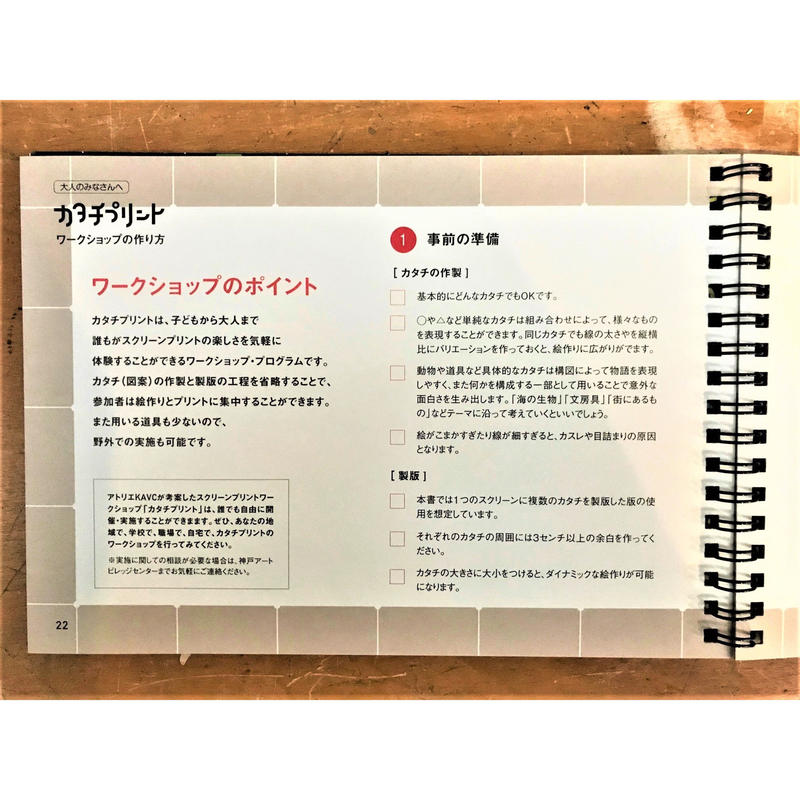 大人のみなさんへ
カタチプリント
ワークショップの作り方
ワークショップのポイント
カタチプリントは、子どもから大人まで
誰もがスクリーンプリントの楽しさを気軽に
体験することができるワークショップ・プログラムです。
カタチ（図案）の作製と製版の工程を省略することで、
参加者は絵作りとプリントに集中することができます。
また用いる道具も少ないので、
野外での実施も可能です。
アトリエKAVCが考案したスクリーンプリントワー
クショップ「カタチプリント」は、誰でも自由に開
催・実施することができます。ぜひ、あなたの地
域で、学校で、職場で、自宅で、カタチプリントの
ワークショップを行ってみてください。
※実施に関しての相談が必要な場合は、神戸アート
ビレッジセンターまでお気軽にご連絡ください。
22
1 事前の準備
［カタチの作製］
基本的にどんなカタチでもOKです。
○や△など単純なカタチは組み合わせによって、様々なもの
を表現することができます。同じカタチでも線の太さやを縦横
比にバリエーションを作っておくと、絵作りに広がりがでます。
動物や道具など具体的なカタチは構図によって物語を表現
しやすく、また何かを構成する一部として用いることで意外な
面白さを生み出します。「海の生物」「文房具」「街にあるも
の」などテーマに沿って考えていくといいでしょう。
絵がこまかすぎたり線が細すぎると、カスレや目詰まりの原因
となります。
［製版］
本書では1つのスクリーンに複数のカタチを製版した版の使
用を想定しています。
それぞれのカタチの周囲には3センチ以上の余白を作ってく
ださい。
カタチの大きさに大小をつけると、ダイナミックな絵作りが可能
になります。